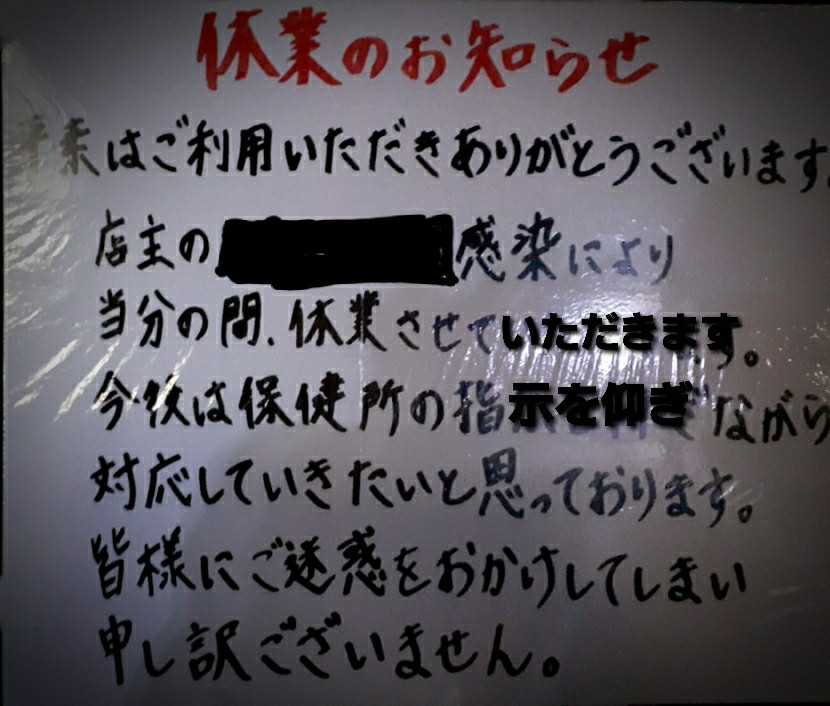 休業のお知らせ
平素はご利用いただきありがとうございます。
店主の 感染により
当分の間、休業させていただきます。
今後は保健所の指示を仰ぎながら
対応していきたいと思っております。
皆様にご迷惑をおかけしてしまい
申し訳ございません。